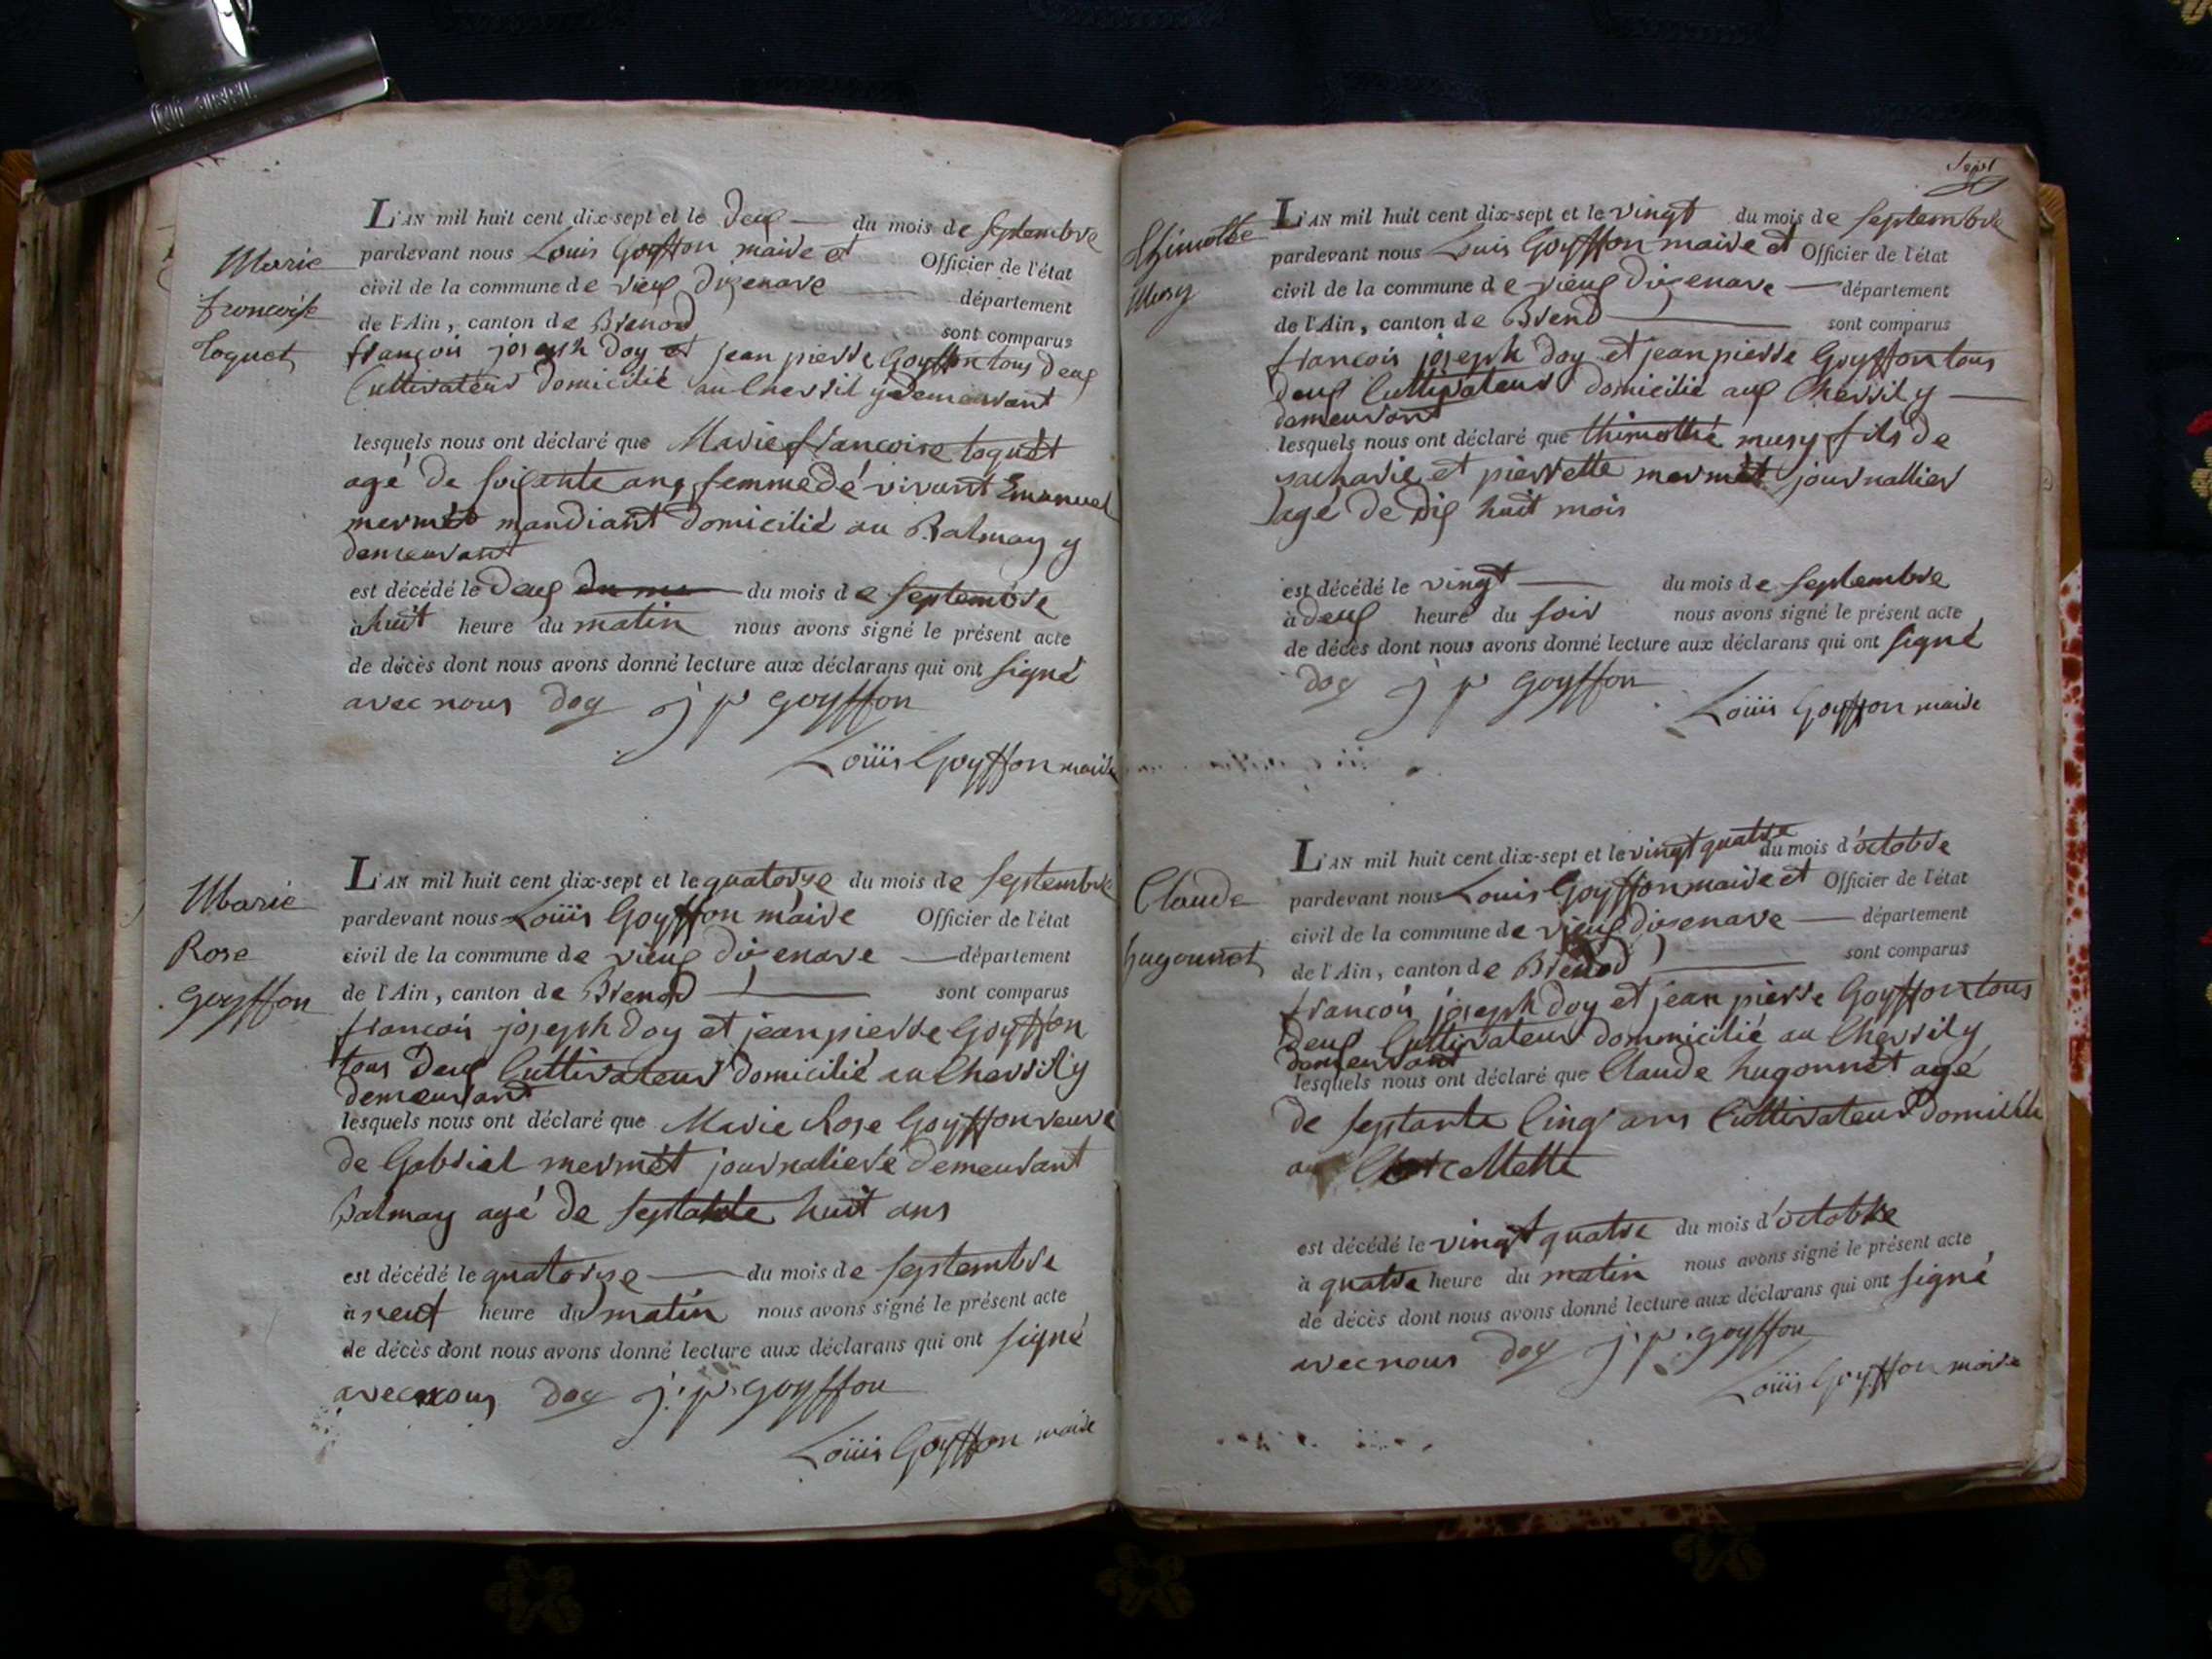 Marie
francoise
toquet
L'AN mil huit cent dix-sept et le deux du mois de septembre
pardevant nous Louis Goyffon maire et Officier de l'état
civil de la commune de vieux dizenave département
de l'Ain, canton de Brenod sont comparus
françois joseph doy et jean pierre Goyffon tous deux
Cultivateur domicilié au Chevril y demeurant
lesquels nous ont déclaré que Marie francoise toquet
agé de soixante ans femme dé vivant Emanuel
mermet mandiant domicilié au Balmay y
demeurant
est décédé le deux du mois de septembre
à huit heure du matin nous avons signé le présent acte
de décès dont nous avons donné lecture aux déclarans qui ont signé
avec nous doy j p goyffon
Loüis Goyffon maire
Marie
Rose
goyffon
L'AN mil huit cent dix-sept et le quatorze du mois de septembre
pardevant nous Loüis Goyffon maire Officier de l'état
civil de la commune de vieux dizenave département
de l'Ain, canton de Brenod sont comparus
francois joseph doy et jean pierre Goyffon
tous deux Cultivateur domicilié au Chevril y
demeurant
lesquels nous ont déclaré que Marie Rose Goyffon veuve
de Gabriel mermet journalieré demeurant
Balmay agé de septante huit ans
est décédé le quatorze du mois de septembre
à neuf heure du matin nous avons signé le présent acte
de décès dont nous avons donné lecture aux déclarans qui ont signé
avec nous doy j. p. goyffon
Loüis Goyffon maire
Sept
thimothe
Musy
L'AN mil huit cent dix-sept et le vingt du mois de septembre
pardevant nous Louis Goyffon maire et Officier de l'état
civil de la commune de vieux dizenave département
de l'Ain, canton de Breno sont comparus
francois joseph doy et jean pierre Goyffon tous
deux Cultivateur domicilié aux Chevril y
demeurant
lesquels nous ont déclaré que thimothé musy fils de
zacharie et pierrette mermet journallier
agé de dix huit mois
est décédé le vingt du mois de septembre
à deux heure du soir nous avons signé le présent acte
de décès dont nous avons donné lecture aux déclarans qui ont signé
doy j p goyffon
Loüis Goyffon maire
Claude
hugonnet
L'AN mil huit cent dix-sept et le vingt quatre du mois d'octobre
pardevant nous Louis Goyffon maire et Officier de l'état
civil de la commune de vieux dizenave département
de l'Ain, canton de Brenod sont comparus
francois joseph doy et jean pierre Goyffon tous
deux Cultivateur dommicilié au Chevril y
demeurant
lesquels nous ont déclaré que Claude hugonnet agé
de septante Cinq ans Cultivateur domicilié
au
est décédé le vingt quatre du mois d'octobre
à quatre heure du matin nous avons signé le présent acte
de décès dont nous avons donné lecture aux déclarans qui ont signé
avec nous doy j. p. goyffon
Loüis Goyffon maire